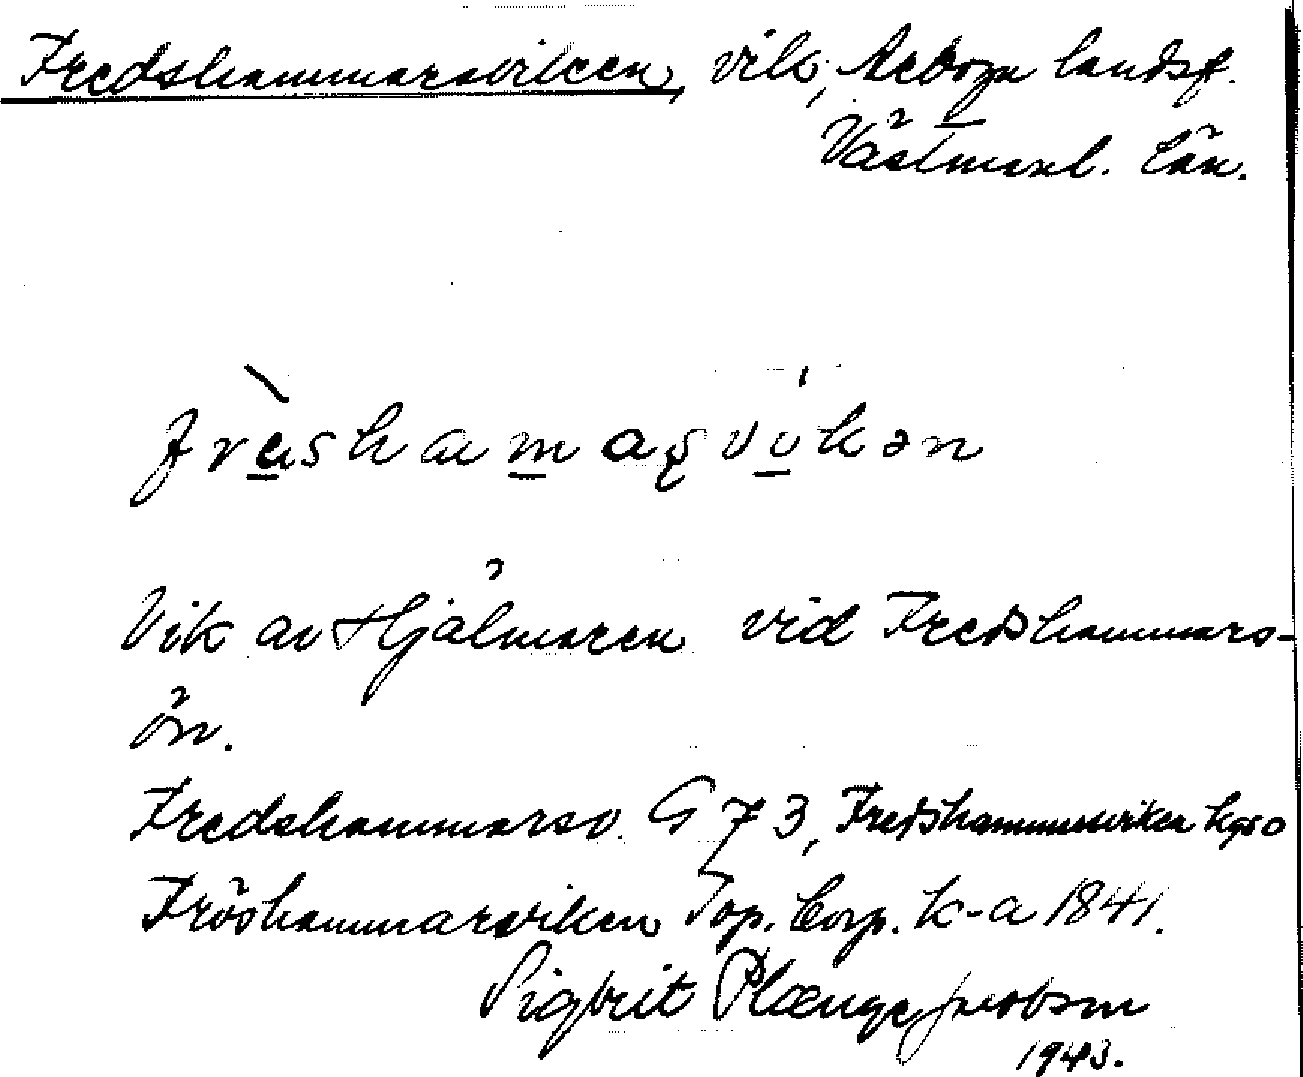 Fredshammarsviken, vik, Arboga landsf.
Västmanl. län.
frèshamaṣvíkən
Vik av Hjälmaren vid Fredshammars-
ön.
Fredshammarsv. G 73, Fredshammarsviken hgs o
Fröshammarsviken Top. Corp. k-a 1841.
Sigbrit Plænge Jacobson
1943.